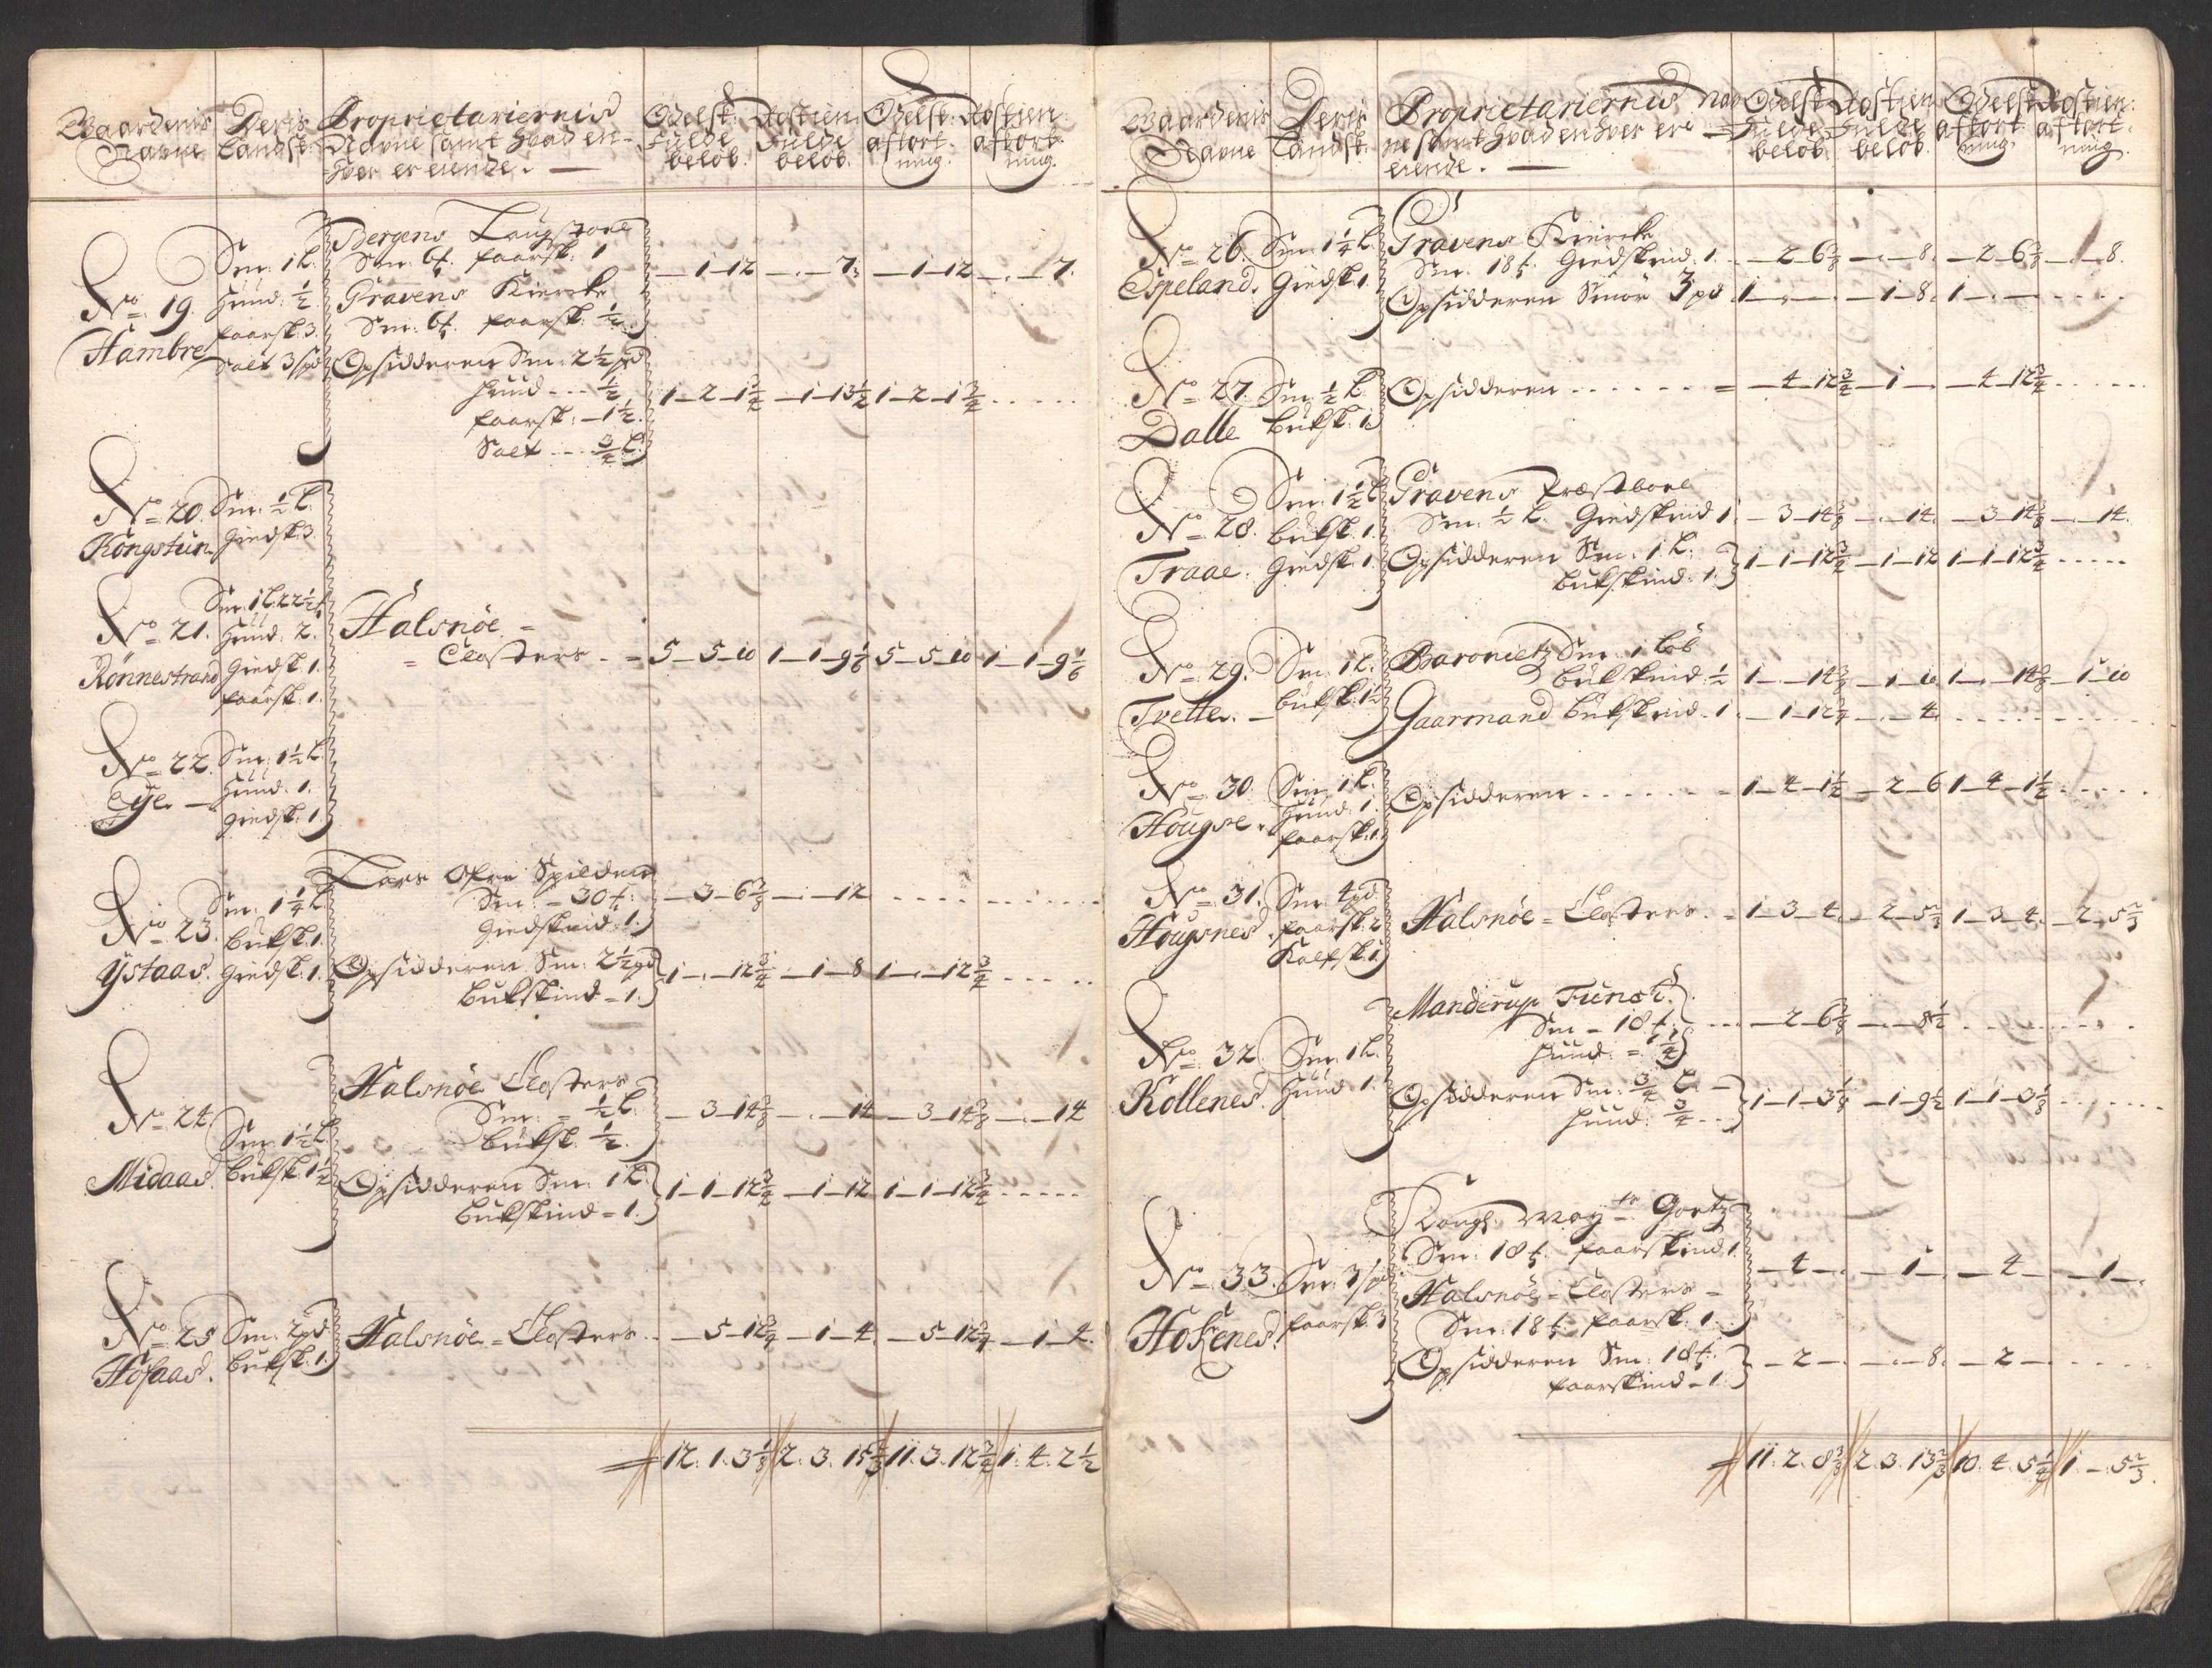 Gaardenis Navne
Deris Landsk:
Proprietariernis Navne samt hvad en-
hver er eiende. —
Odelsk: fulde beløb.
Rostien: fulde beløb.
Odelsk: afkort-ning.
Rostien: afkort-ning.
No. 19. Hambre
Sm: 1 L.
Huud: ½
faarsk: 3.
Salt 3 pd
Bergens
Sm: 6 f. faarsk: 1
— 1 — 12 — . — 7. — 1 — 12 — . — 7.
Gravens Kiercke
Sm: 6 f. faarsk: ½
Opsidderen Sm: 2½ pd
huud - - - ½
faarsk: — 1½
Salt - - - ¾ L
1 — 2 — 1¾ — 1 — 13½ 1 — 2 — 1¾ . . . . .
No. 20. Kongstun
Sm: ½ L.
Giedsk: 3.
No. 21. Rønnestrand
Sm: 1 L. 22½ f
Huud: 2.
Giedsk 1.
faarsk: 1.
Halsnöe =
= Closters. = 5 — 5 — 10 1 — 1 — 9⅙ 5 — 5 — 10 1 — 1 — 9⅙
No. 22. Eye. —
Sm: 1½ L.
Huud: 1.
Giedsk: 1.
No. 23. Ystaas.
Sm: 1¼ L
Buksk: 1.
Giedsk: 1.
Lars Ofre Spilden
Sm: — 30 f:
Giedskind: 1.
— 3 — 6⅜ — . — 12 . . . . .
Opsidderen Sm: 2½ pd
Bukskind = 1.
1 — . — 12¾ — 1 — 8 1 — . — 12¾ . . . . .
No. 24. Midaas.
Sm: 1½ L
Buksk: 1½
Halsnöe Closters
Sm: = ½ L.
Buksk: ½.
— 3 — 14⅜ — . — 14 — 3 — 14⅜ — . — 14
Opsidderen Sm: 1 L.
Bukskind = 1.
1 — 1 — 12¾ — 1 — 12 1 — 1 — 12¾ . . . . .
No. 25 Hofaas.
Sm: 2 pd
Buksk: 1.
Halsnöe = Closters. — 5 — 12¾ — 1 — 4. — 5 — 12¾ — 1 — 4.
12. 1. 3⅛ 2. 3. 15⅔ 11. 3. 12¾ 1. 4. 2½
Gaardenis Navne
Deris Landsk.
Proprietariernis Nav-
ne samt hvad enhver ere
eiende. —
Odelsk fulde beløb.
Rostien: fulde beløb.
Odelsk: afkort-ning.
Rostien: afkort-ning.
No. 26. Espeland.
Sm: 1¼ L.
Giedsk 1.
Gravens Kiercke
Sm: 18 f. Giedskind. 1. — 2 — 6⅜ — . — 8. — 2 — 6⅜ — . — 8.
Opsidderen Smör 3 pd 1 — . — . — 1 — 8. 1 — . — . . . . .
No. 27. Dalle
Sm: ½ L.
Buksk. 1.
Opsidderen . . . . . . = — 4 — 12¾ — 1 — . — 4 — 12¾ . . . . .
No. 28. Traae.
Sm: 1½ L
Buksk. 1.
Giedsk: 1.
Gravens Præstboel
Sm: ½ L. Giedskind 1. — 3 — 14⅜ — . — 14. — 3 — 14⅜ — . — 14.
Opsidderen Sm: 1 L.
Bukskind: 1.
1 — 1 — 12¾ — 1 — 12 1 — 1 — 12¾ . . . . .
No. 29. Tvette. —
Sm: 1 L.
Buksk: 1½
Baronietz Sm: 1 Løb
Bukskind: ½ 1 — . — 14⅜ — 1 — 10 1 — . — 14⅜ — 1 — 10
Gaarmand Bukskind. 1. — 1 — 12¾ — . — 4. . . . . .
No. 30. Hougse.
Sm: 1 L.
Huud: 1.
faarsk: 1.
Opsidderen . . . . . . = 1 — 4 — 1½ — 2 — 6 1 — 4 — 1½ . . . . .
No. 31. Hougsnes.
Sm: 4 pd
faarsk: 2
Kalfsk: 1.
Halsnöe = Closters. = 1 — 3 — 4. — 2 — 5⅔ 1 — 3 — 4. — 2 — 5⅔
No. 32. Kollenes.
Sm: 1 L.
Huud: 1.
Manderup Funck
Sm = 18 f.
huud: = ¼
— 2 — 6⅜ — . — 8½ . . . . .
Opsidderen Sm: ¾ L. —
huud: ¾
1 — 1 — 3⅛ — 1 — 9½ 1 — 1 — 3⅛ . . . . .
No. 33. Hofsenes.
Sm: 3 pd
faarsk: 3
Kongl: May:ts Goetz
Sm: 18 f. faarskind 1.
Halsnöe = Closters =
Sm: 18 f. faarsk: 1.
— 4 — . — 1 — . — 4 — . — 1 — .
Opsidderen Sm: 18 f.
faarskind = 1
— 2 — . — . — 8. — 2 — . . . . .
11. 2. 8⅜ 2. 3. 13⅔ 10. 4. 5¼ 1. — . 5⅔.